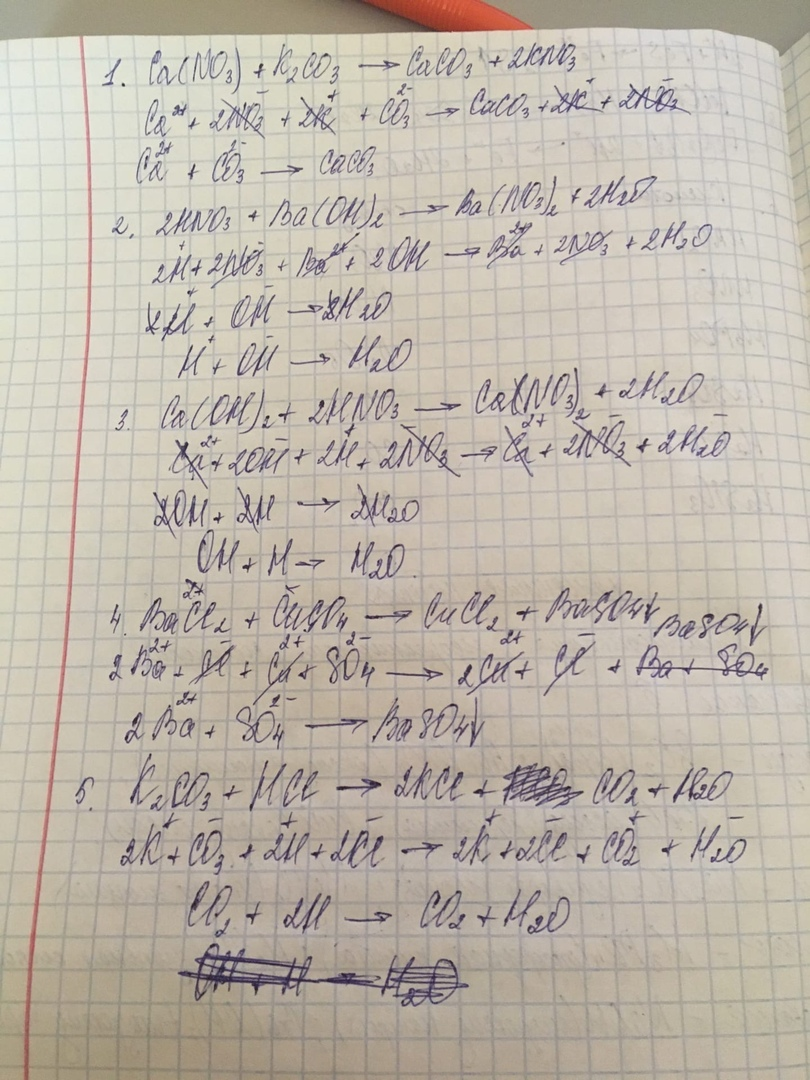 1. Ca(NO₃) + K₂CO₃ → CaCO₃ + 2KNO₃
Ca²⁺ + 2NO₃⁻ + 2K⁺ + CO₃²⁻ → CaCO₃ + 2K⁺ + 2NO₃⁻
Ca²⁺ + CO₃²⁻ → CaCO₃
2. 2HNO₃ + Ba(OH)₂ → Ba(NO₃)₂ + 2H₂O
2H⁺ + 2NO₃⁻ + Ba²⁺ + 2OH → Ba²⁺ + 2NO₃⁻ + 2H₂O
2H⁺ + OH⁻ → 2H₂O
H⁺ + OH⁻ → H₂O
3. Ca(OH)₂ + 2HNO₃ → Ca(NO₃)₂ + 2H₂O
Ca²⁺ + 2OH⁻ + 2H⁺ + 2NO₃⁻ → Ca²⁺ + 2NO₃⁻ + 2H₂O⁻
2OH + 2H → 2H₂O
OH + H → H₂O
4. BaCl₂ + CuSO₄ → CuCl₂ + BaSO₄↓
BaSO₄↓
2Ba²⁺ + Cl⁻ + Cu²⁺ + SO₄²⁻ → 2Cu²⁺ + Cl⁻ + Ba + SO₄
2Ba²⁺ + SO₄²⁻ → BaSO₄↓
5. K₂CO₃ + HCl → 2KCl + CO₂ + H₂O
2K⁺ + CO₃⁻ + 2H⁺ + 2Cl⁻ → 2K⁺ + 2Cl⁻ + CO₂⁺ + H₂O⁻
CO₂ + 2H → CO₂ + H₂O
OH + H → H₂O